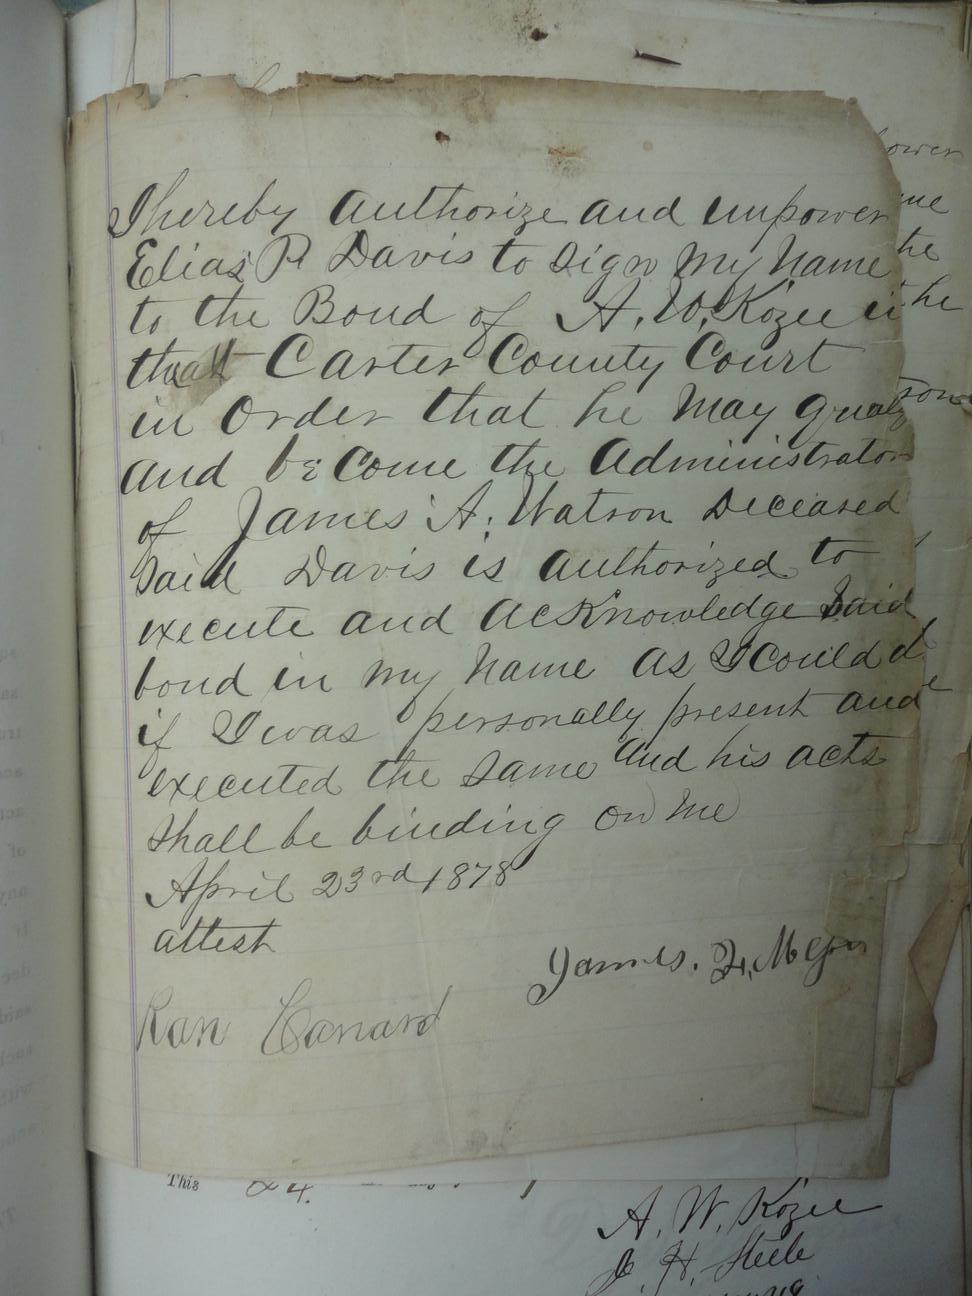 I hereby authorize and empower
Elias P. Davis to sign my name
to the Bond of A. W. Kozee in
the Carter County Court
in order that he may qualify
and become the administrator
of James A. Watson Deceased
Said Davis is authorized to
execute and acknowledge said
bond in my name as I could d
if I was personally present and
executed the same and his acts
shall be binding on me
April 23rd 1878
attest
James. H. McGuire
Ran Canard
ower
me
the
the
son
This 24.
A. W. Kozee
J. H. Steele